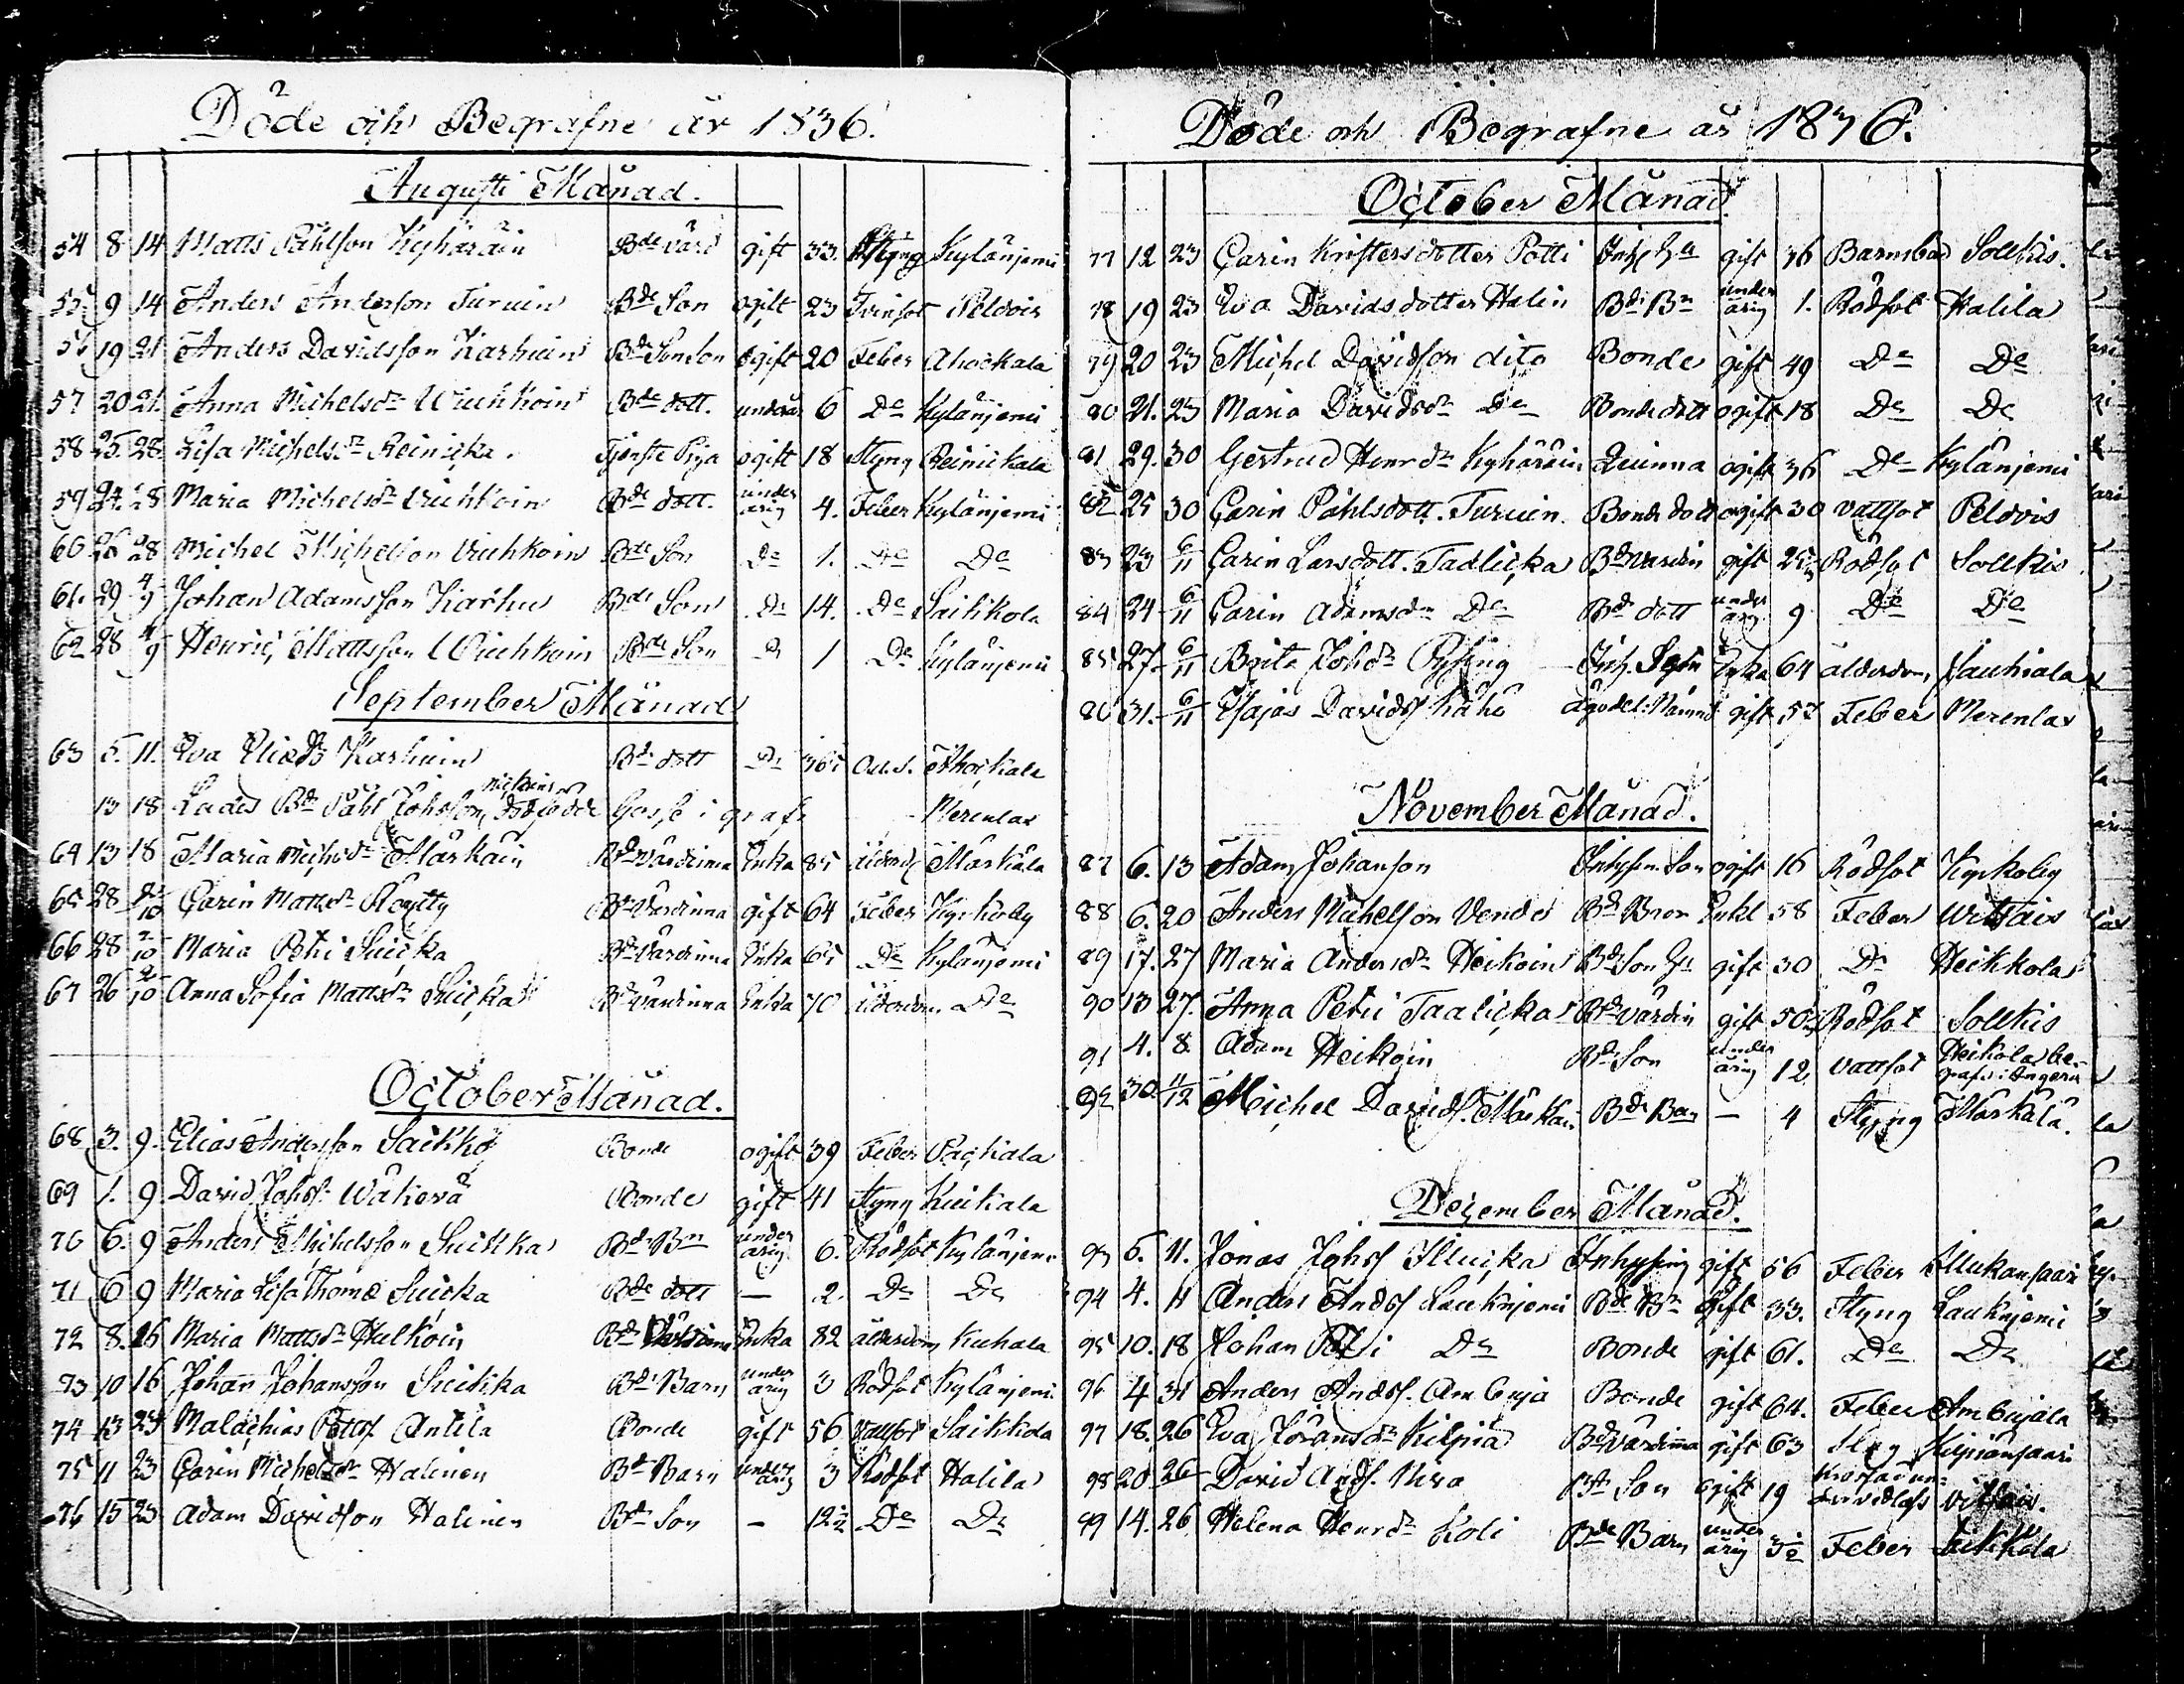 Döde och Begrafne år 1836.
Augusti Månad.
54 8 14 Matts Påhlson Kyhäräin Bde värd gift 33. Styng Kylänjemi
55 9 14 Anders Andersson Turuin Bde Son ogift 23 Tvinsot Peldois
56 19 21 Anders Davidsson Karhuin Bde Sonson ogift 20 Feber Ahockala
57 20 21. Anna Michelsdr Wiehkoin Bde dott. underår 6 Do Kylänjemi
58 25. 28. Lisa Michelsdr Reinicka. Tjenste Piga ogift 18 Styng Reinickala
59 24. 28 Maria Michelsdr Viehkoin Bde dott. under årig 4. Feber Kylänjemi
60 26 28 Michel Michelson Viehkoin Bde Son Do 1. Do Do
61. 29 4/9 Johan Adamsson Karhu Bde Son Do 14. Do Saikkola
62 28 4/9 Henric Mattsson Wiehkoin Bde Son Do 1 Do Kylänjemi
September Månad
63 5. 11. Eva Eliædr Karhuin Bde dott Do Ahockala
13 18 Lades Bde Påhl Johsson dödfödde Gosse i graf Merenlax
64 13 18 Maria Michsdr Märkäin Bde Värdinna Enka 85 ålderd. Märkälä
65 28 2/10 Carin Mattsdr Röytty Bde Värdinna gift 64 Feber Kyrkoby
66 28 2/10 Maria Petri Suicka Bde Värdinna Enka 65 Do Kylänjemi
67 26 2/10 Anna Sofia Mattsdr Suicka Bde Värdinna Enka 70 ålderdom Do
October Månad.
68 3. 9. Elias Andersson Saikko Bonde ogift 39 Feber Pachala
69 1. 9. David Johs. Wäkevä Bonde gift 41 Styng Kuikala
70 6. 9 Anders Michelsson Suikka Bde Bn under årig 6. Rödsot Kylänjemi
71 6 9 Maria Lisa Thomæ Suicka Bde dott — 2. Do Do
72 8. 16 Maria Mattsdr Hulkoin Bde Värdinna Enka 82 ålderdom Kukala
73 10 16 Johan Johansson Suikka Bde Barn under årig 3 Rödsot Kylänjemi
74 13 23 Malachias Petts. Antila Bonde gift 56 Vattsot Saikkola
75 11 23 Carin Michelsdr Halinen Bde Barn under årig 3 Rödsot Halila
76 15 23 Adam Davidson Halinen Bde Son – 12½ Do Do
Döde och Begrafne år 1836.
October Månad.
77 12 23 Carin Kristersdotter Potti Inh. Hu gift 36 Barnsbörd Solkis.
78 19 23 Eva Davidsdotter Halin Bde Bn under årig 1. Rödsot Halila
79 20 23 Michel Davidson dito Bonde gift 49 Do Do
80 21. 23 Maria Davidsdr Do Bonde dott ogift 18 Do Do
81 29. 30 Gertrud Henrdr Kyhäräin Quinna ogift 36 Do Kylänjemi
82 25 30 Carin Påhlsdott. Turuin Bonde dott ogift 30 Vattsot Peldois
83 23 6/11 Carin Larsdott. Tadlicka Bde värdin gift 25 Rödsot Solkis
84 24 6/11 Carin Adamsdr Do Bde dott under årig 9 Do Do
85 27. 6/11 Brita Johsdr Pysing Enka 64 ålderdom, Jauhiala
86 31. 6/11 Esajas Davids Kähö gift 57 Feber Merenlax
November Månad.
87 6. 13 Adam Johanson Inhyses Son ogift 16 Rödsot Kyrkoby
88 6. 20 Anders Michelson Vende Bde Bror Enkl 58 Feber Witsais
89 17. 27 Maria Andersdr Heikoin Bde Son Hu gift 30 Do Heikkola
90 13 27. Anna Petri Taalicka Bde värdin gift 50 Rödsot Solkis
91 4. 8. Adam Heikoin Bde Son under årig 12 Vattsot Heikola begrafs i Angeris
92 30. 11/12 Michel Davids. Märkäin Bde Barn — 4 Styng Märkälä.
December Månad.
93 6. 11. Jonas Johs Illuicka Inhysing gift 56 Feber Illukansaari
94 4. 11 Anders Ands Laukniemi Bde Bn gift 33. Styng Laukniemi
95 10. 18 Johan Petri Do Bonde gift 61. Do Do
96 4 31 Anders Ands. Ambuja Bonde gift 64. Feber Ambujala
97 18. 26 Eva Göransdr Kilpiä Bde Värdinna gift 63 Styg Kilpiänsaari
98 20 26 David Ands. Bde Son ogift 19 Witsais.
99 14. 26 Helena Henrdr Koli Bde Barn under årig 3½ Feber Saikkola